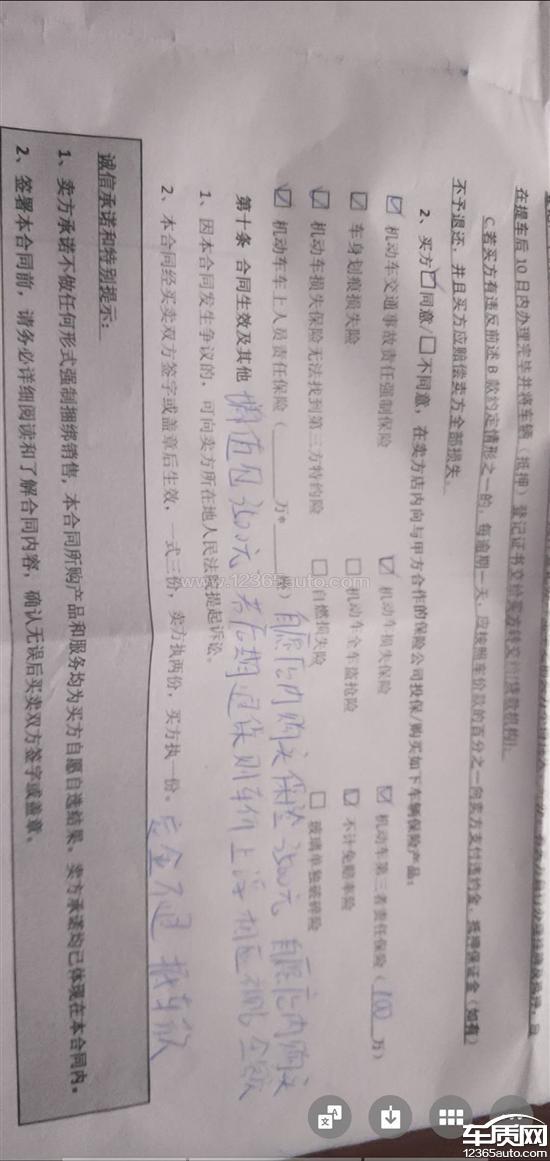 在提车后 10 日内办理完毕并将车辆（抵押）登记证书交给卖方转交给贷款机构）。
C若买方有违反前述 B 款约定情形之一的，每逾期一天，应按照车价款的百分之一向卖方支付违约金，抵押保证金（如有）
不予退还，并且买方应赔偿卖方全部损失。
2、买方☑同意/☐不同意，在卖方店内向与甲方合作的保险公司投保/购买如下车辆保险产品：
☑ 机动车交通事故责任强制保险 ☑ 机动车损失保险 ☑ 机动车第三者责任保险（100万）
☑ 车身划痕损失险 ☐ 机动车全车盗抢险 ☑ 不计免赔率险
☑ 机动车损失保险无法找到第三方特约险 ☐ 自燃损失险 ☐ 玻璃单独破碎险
☑ 机动车车上人员责任保险（ 万* 座） 自愿店内购买保险3500元 自愿店内购买
第十条 合同生效及其他 3600元 若后期退保则车价上浮相应 金额
1、因本合同发生争议的，可向卖方所在地人民法院提起诉讼。
2、本合同经买卖双方签字或盖章后生效，一式三份，卖方执两份，买方执一份。 定金不退 抵车款
诚信承诺和特别提示：
1、卖方承诺不做任何形式强制捆绑销售，本合同所购产品和服务均为买方自愿自选结果，卖方承诺均已体现在本合同内。
2、签署本合同前，请务必详细阅读和了解合同内容，确认无误后买卖双方签字或盖章。
www.12365auto.com
车质网
12365auto.com